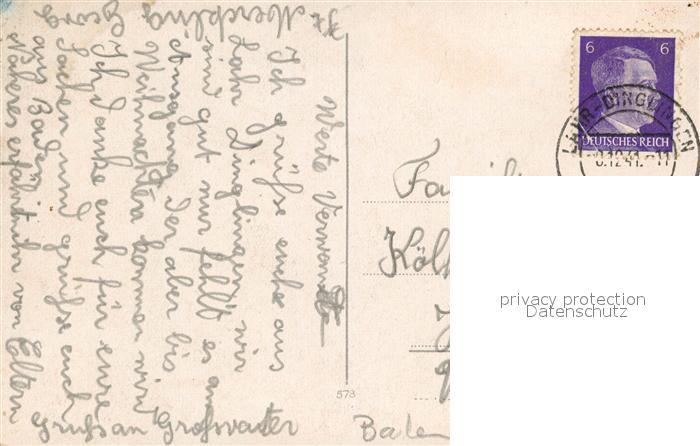 Werte Verwandte
Ich grüße euch aus
Lahr Dinglingen mir
sind gut nur fehlt es am
Ausgang der aber bis
Weihnachten kommen wird
Ich danke euch für eure
Sachen und grüße euch
aus Baden
Näheres erfahrt ihr von Eltern
Gruß an Großvater
Georg
6 6
DEUTSCHES REICH
LAHR-DINGLINGEN
.12.41.-11
Familie
Köl
Baden
573
privacy protection
Datenschutz